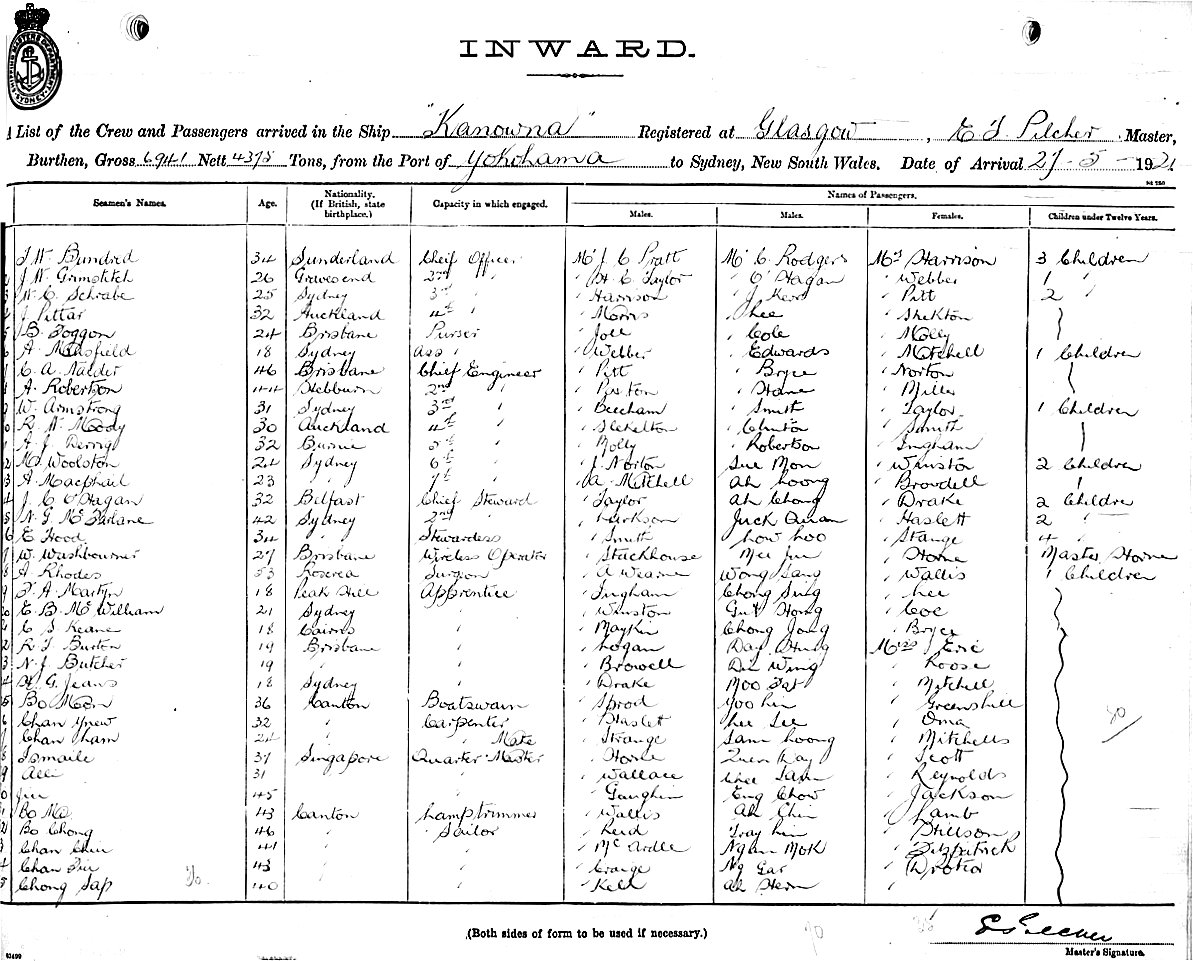 SHIPPING MASTERS DEPARTMENT SYDNEY
INWARD.
A List of the Crew and Passengers arrived in the Ship "Kanowna" Registered at Glasgow, E T Pilcher Master,
Burthen, Gross 6941 Nett 4375 Tons, from the Port of Yokohama to Sydney, New South Wales. Date of Arrival 27-5-1921
Seamen's Names. Age. Nationality. (If British, state birthplace.) Capacity in which engaged. Names of Passengers.
Males. Males. Females. Children under Twelve Years.
J W Bundred 34 Sunderland Cheif Officer Mr J C Pratt Mr C Rodgers Mrs Harrison 3 Children
2 J W Grimstitch 26 Gravesend 2nd " " H C Taylor " O'Hagan " Webber 1 "
3 W C Schrabe 25 Sydney 3rd " " Harrison " J Kerr " Pitt 2 "
4 J Pittar 32 Auckland 4th " " Morris " Lee " Shekton
5 B Foggon 24 Brisbane Purser " Joll " Cole " Molly
6 A Mansfield 18 Sydney Ass " " Webber " Edwards " Mitchell 1 Children
C A Nalder 46 Brisbane Chief Engineer " Pitt " Bryce " Norton
A Robertson 44 Hebburn 2nd " " Paxton " Hane " Miller
W. Armstrong 31 Sydney 3rd " " Beecham " Smith " Taylor 1 Children
R W Moody 30 Auckland 4th " " Skekelton " Clinton " Smith
A J Derrig 32 Burnie 5th " " Molly " Robertson " Ingham
2 M Woolston 24 Sydney 6th " " J Norton Sue Mon " Winston 2 Children
3 A Macphail 23 " 7th " " A Mitchell Ah Loong " Browdell
4 J C O'Hagan 32 Belfast Chief Steward " Taylor Ah Chong " Drake 2 Children
5 N G McFarlane 42 Sydney 2nd " " Larkson Juck Quan " Haslett 2 "
6 E Hood 34 " Stewardess " Smith Low Loo " Stange 4 "
7 W. Washbourner 27 Brisbane Wireless Operator " Stackhouse Mee Jue " Horne Master Horne
8 A Rhodes 53 Roscrea Surgeon " A Wearne Wong Sang " Wallis 1 Children
9 F A Martyn 18 Peak Hill Apprentice " Ingham Chong Sing " Lee
E B McWilliam 21 Sydney " " Winston Gut Hong " Coe
C S Keane 18 Cairns " " Maykin Chong Jong " Bryce
2 R T Burton 19 Brisbane " " Logan Day Hung Miss J Eric
3 N J Butcher 19 " " " Browell Die Wing " Loose
4 H G Jeans 18 Sydney " " Drake Moo Fat " Mitchell
5 Bo Mon 36 Canton Boatswain " Sprod Yoo Lin " Greenshill
6 Chan Ynew 32 " Carpenter " Haslett Lee See " Oma
7 Chan Cham 24 " " Mate " Strange Sam Loong " Mitchells
8 Ismaile 37 Singapore Quarter Master " Horne Quen Kay " Scott
9 Alli 31 " " " Wallace Chee Tam " Reynolds
0 Jin 45 " " " Gaughin Eng Chow " Jackson
Bo Mo 43 Canton Lamptrimmer " Wallis Ah Chin " Lamb
2 Bo Chong 46 " Sailor " Reid Tray Lin " Stillson
3 Chan Chin 41 " " " McArdle Ngan Mok " Fitzpatrick
4 Chan Fui 43 " " " Crange Ng Gar " Droted
5 Chong Sap 40 " " " Kell Ah Hern "
(Both sides of form to be used if necessary.)
Master's Signature.